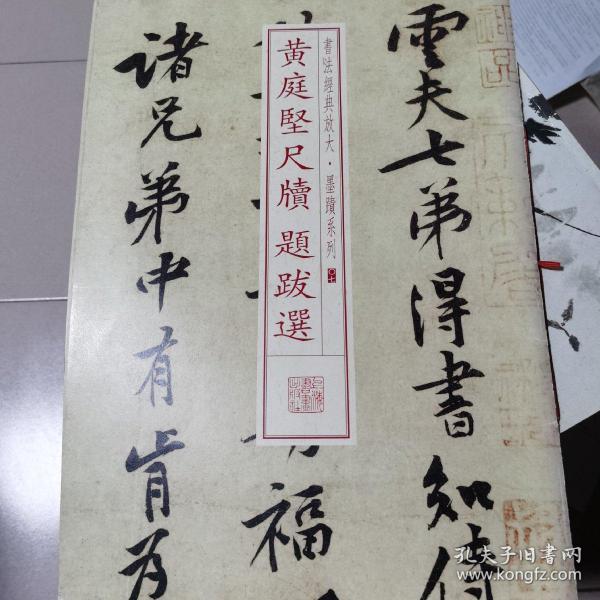 雲夫七弟得書知
福
諸兄弟中有肯
書法經典放大·墨蹟系列
黄庭堅尺牘 題跋選
上海書畫出版社
孔夫子旧书网
www.kongfz.com